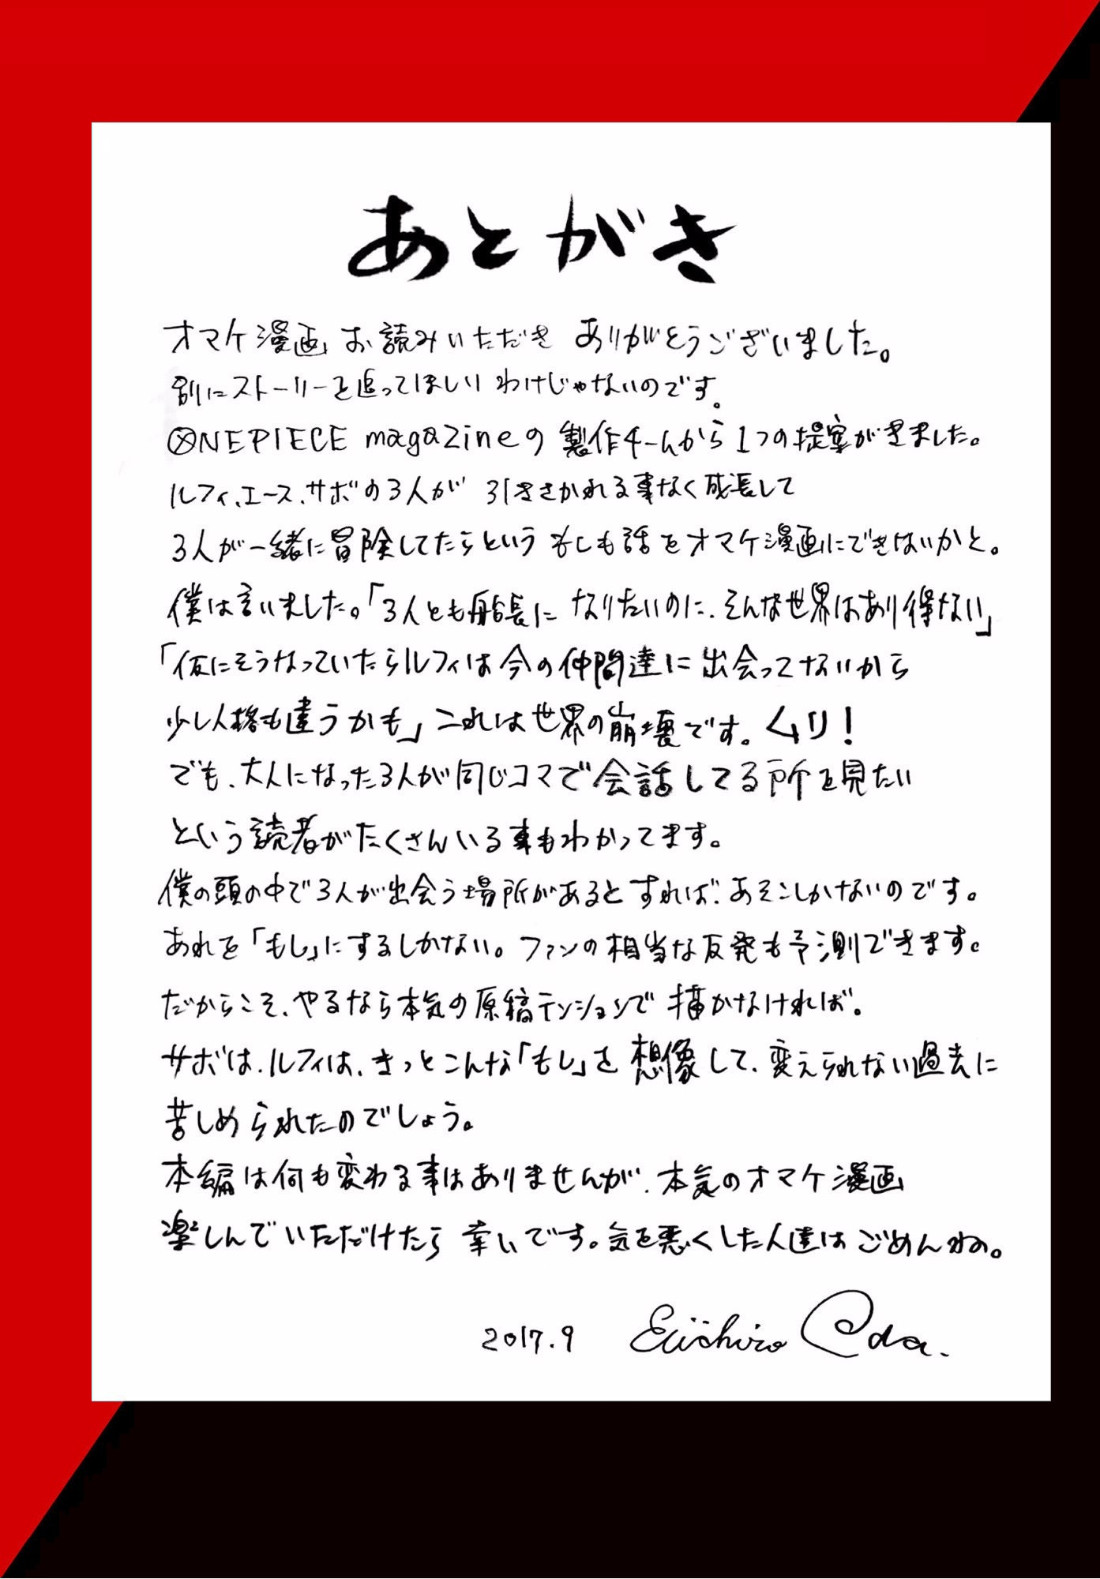 あとがき
オマケ漫画 お読みいただき ありがとうございました。
別にストーリーを追ってほしい わけじゃないのです。
ONEPIECE magazineの 製作チームから 1つの提案がきました。
ルフィ、エース、サボの3人が 引きさかれる事なく成長して
3人が一緒に冒険してたらという もしも話をオマケ漫画にできないかと。
僕は言いました。「3人とも船長に なりたいのに、そんな世界はあり得ない」
「仮にそうなっていたらルフィは今の仲間達に 出会ってないから
少し人格も違うかも」これは世界の崩壊です。ムリ!
でも、大人になった3人が同じコマで会話してる所を見たい
という読者がたくさんいる事もわかってます。
僕の頭の中で3人が出会う場所があるとすれば、あそこしかないのです。
あれを「もし」にするしかない。ファンの相当な反発も予測できます。
だからこそ、やるなら本気の原稿テンションで 描かなければ。
サボは、ルフィは、きっとこんな「もし」を 想像して、変えられない過去に
苦しめられたのでしょう。
本編は何も変わる事はありませんが、本気のオマケ漫画
楽しんでいただけたら 幸いです。気を悪くした人達は ごめんねの。
2017.9 Eiichiro Oda.